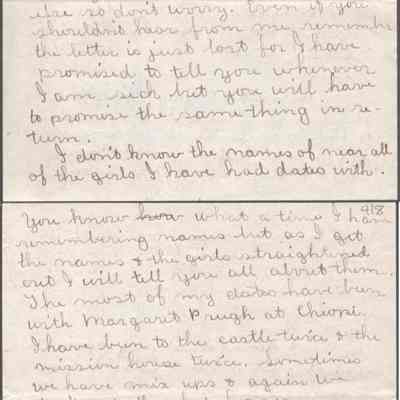 else so don't worry. Even if you
shouldn't hear from me, remember
the letter is just lost for I have
promised to tell you whenever
I am sick but you will have
to promise the same thing in re-
turn.
I don't know the names of near all
of the girls I have had dates with.
418
You know how what a time I have
remembering names but as I get
the names & the girls straightened
out I will tell you all about them.
The most of my dates have been
with Margaret Prugh at Chioni.
I have been to the castle twice & the
mission house twice. Sometimes
we have mix ups & again we